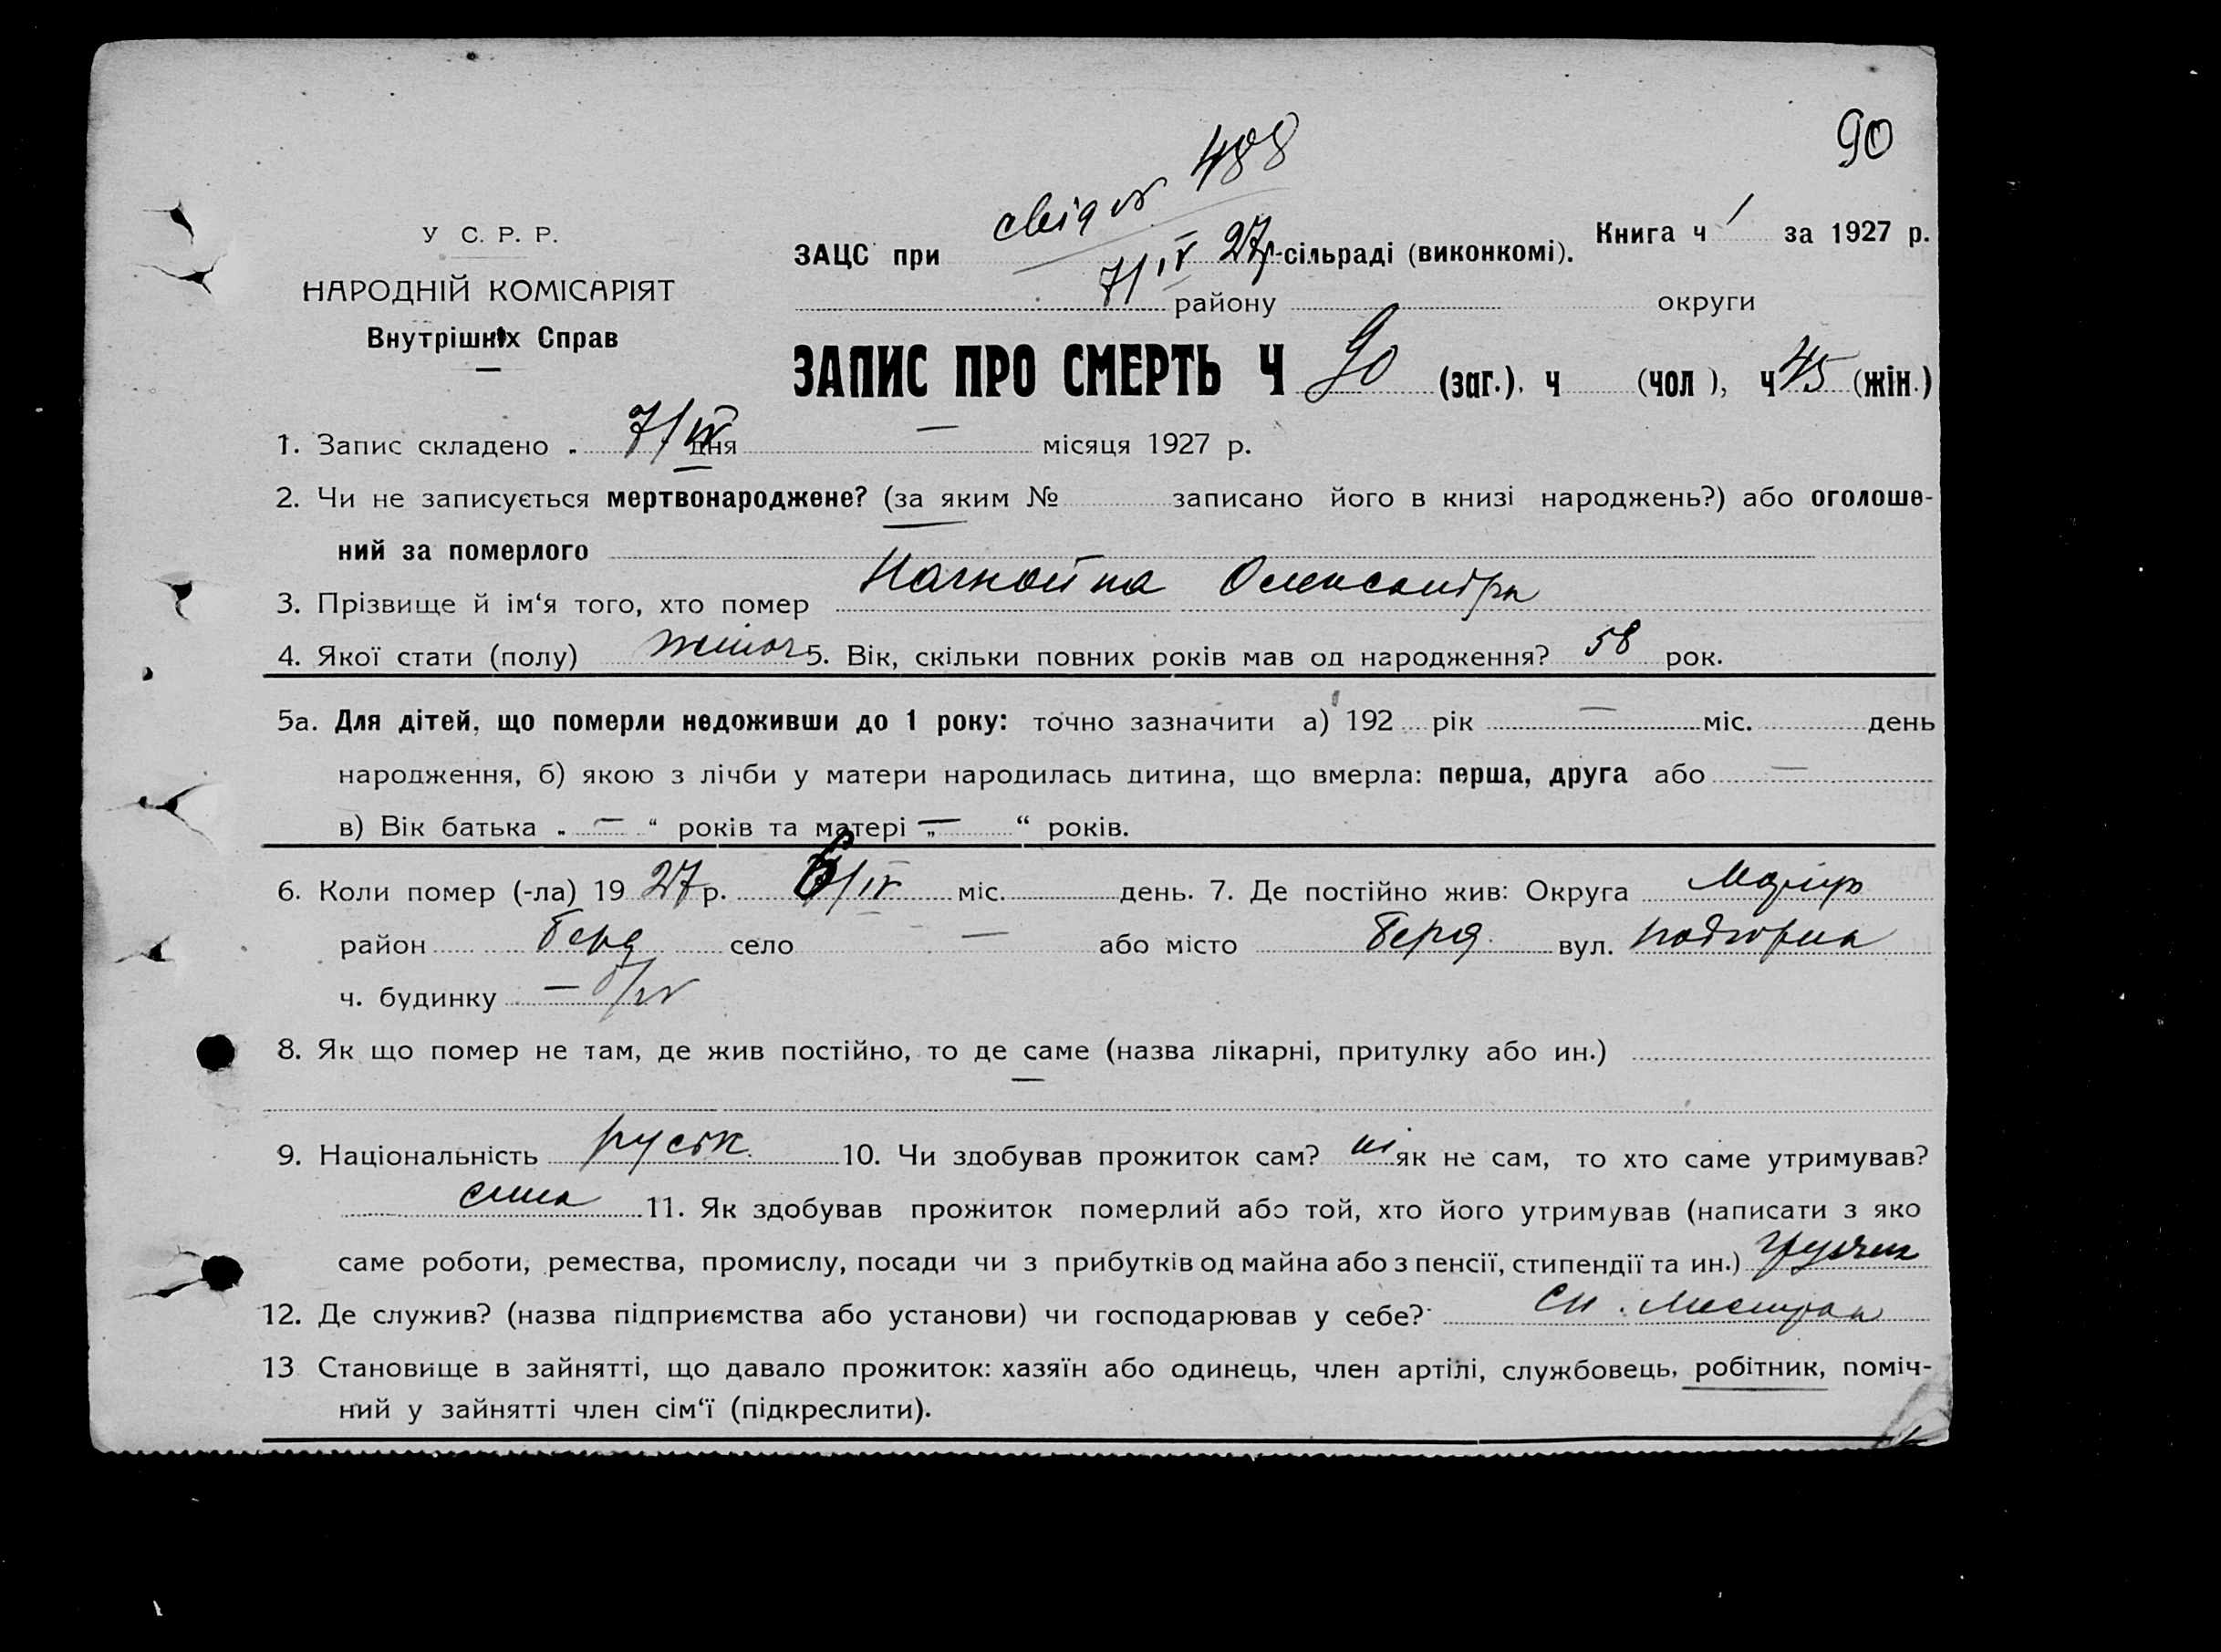 90
свід № 488
У С. Р. Р.
НАРОДНІЙ КОМІСАРІЯТ
Внутрішніх Справ
Книга ч 1 за 1927 р.
ЗАЦС при 7/IV 27р-сільраді (виконкомі).
району округи
ЗАПИС ПРО СМЕРТЬ Ч 90 (заг.), ч (чол ), ч 45 (жін.)
1. Запис складено „ 7/IV дня — місяця 1927 р.
2. Чи не записується мертвонароджене? (за яким № записано його в книзі народжень?) або оголоше-
ний за померлого
3. Прізвище й ім‘я того, хто помер Олександра
4. Якої стати (полу) жіноч 5. Вік, скільки повних років мав од народження? 58 рок.
5а. Для дітей, що померли недоживши до 1 року: точно зазначити а) 192 рік — міс. день
народження, б) якою з лічби у матери народилась дитина, що вмерла: перша, друга або —
в) Вік батька „ — “ років та матері „ — “ років.
6. Коли помер (-ла) 19 27 р. 6/IV міс. день. 7. Де постійно жив: Округа
район Берд село — або місто Берд. вул.
ч. будинку —
8. Як що помер не там, де жив постійно, то де саме (назва лікарні, притулку або ин.)
—
9. Національність руськ. 10. Чи здобував прожиток сам? ні як не сам, то хто саме утримував?
сина 11. Як здобував прожиток померлий або той, хто його утримував (написати з яко
саме роботи, ремества, промислу, посади чи з прибутків од майна або з пенсії, стипендії та ин.) грузчик
12. Де служив? (назва підприємства або установи) чи господарював у себе?
13 Становище в зайнятті, що давало прожиток: хазяїн або одинець, член артілі, службовець, робітник, поміч-
ний у зайнятті член сім‘ї (підкреслити).